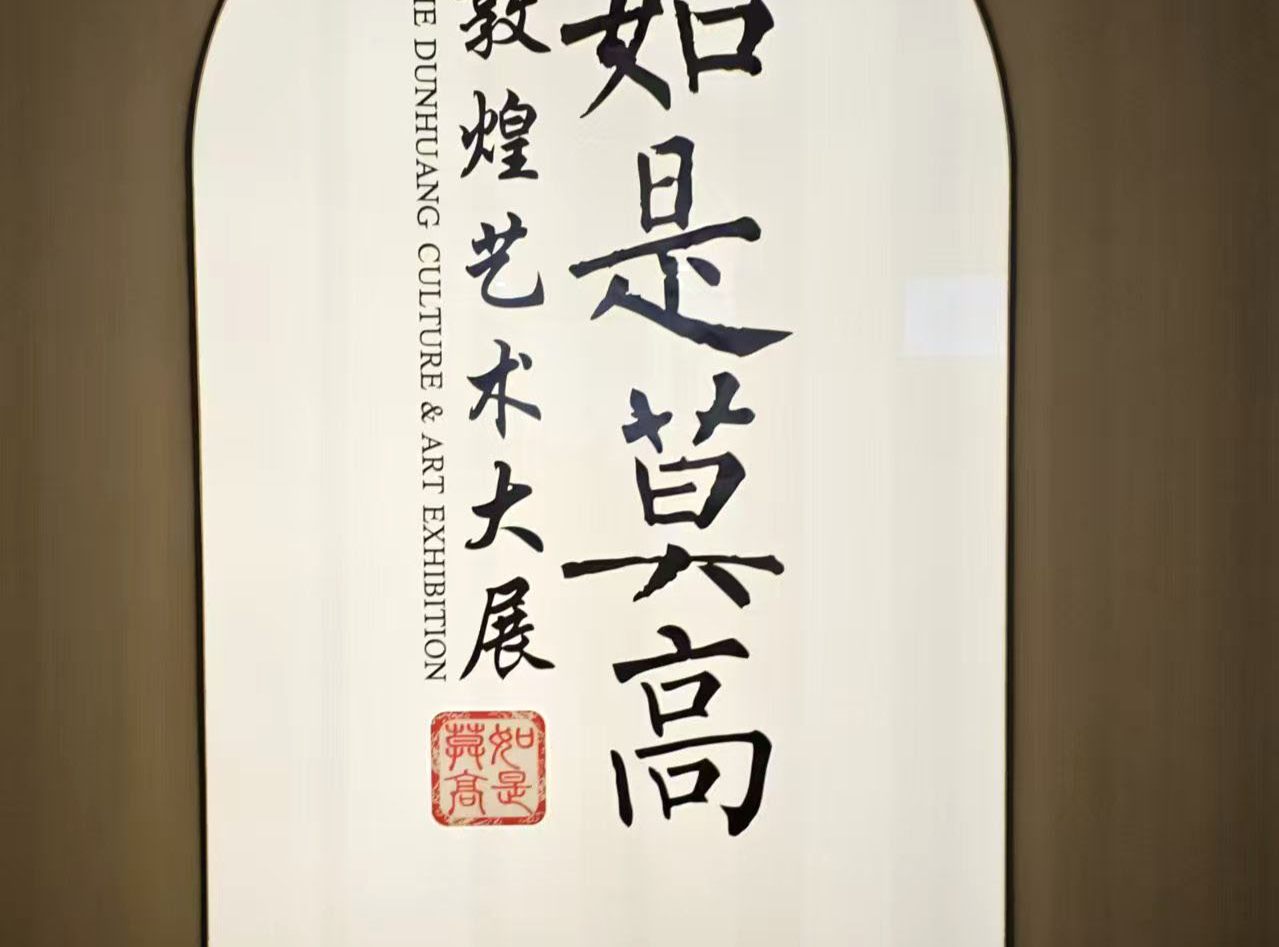 如是莫高
敦煌艺术大展
E DUNHUANG CULTURE & ART EXHIBITION
如是
莫高